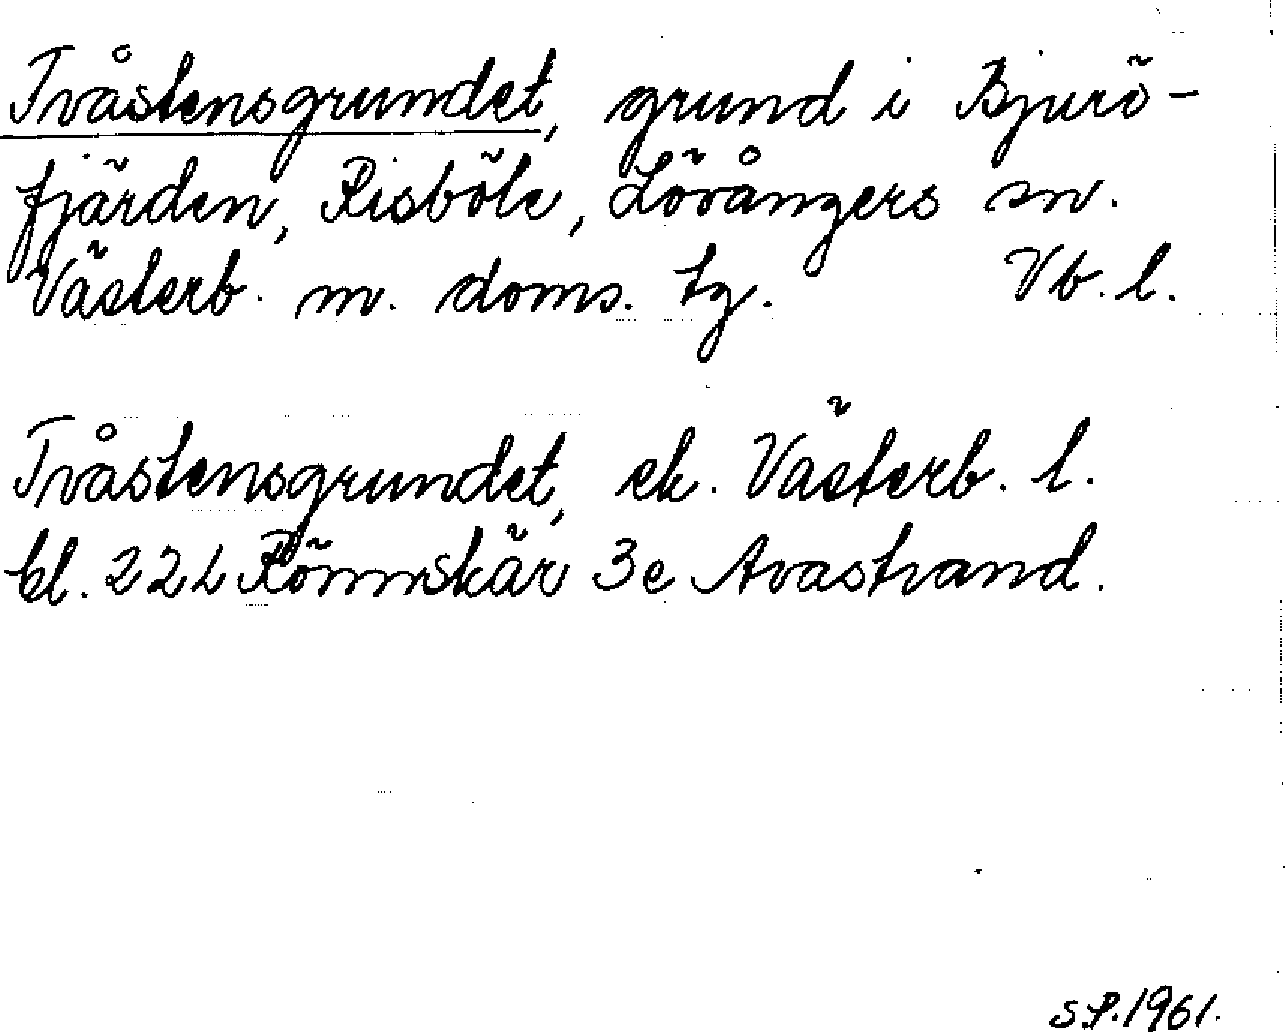 Tvåstensgrundet, grund i Bjurö-
fjärden, Risböle, Lövångers sn.
Västerb. n. doms. tg. Vb. l.
Tvåstensgrundet, ek. Västerb. l.
bl. 22L Rönnskär 3e Avastrand.
S.P. 1961.